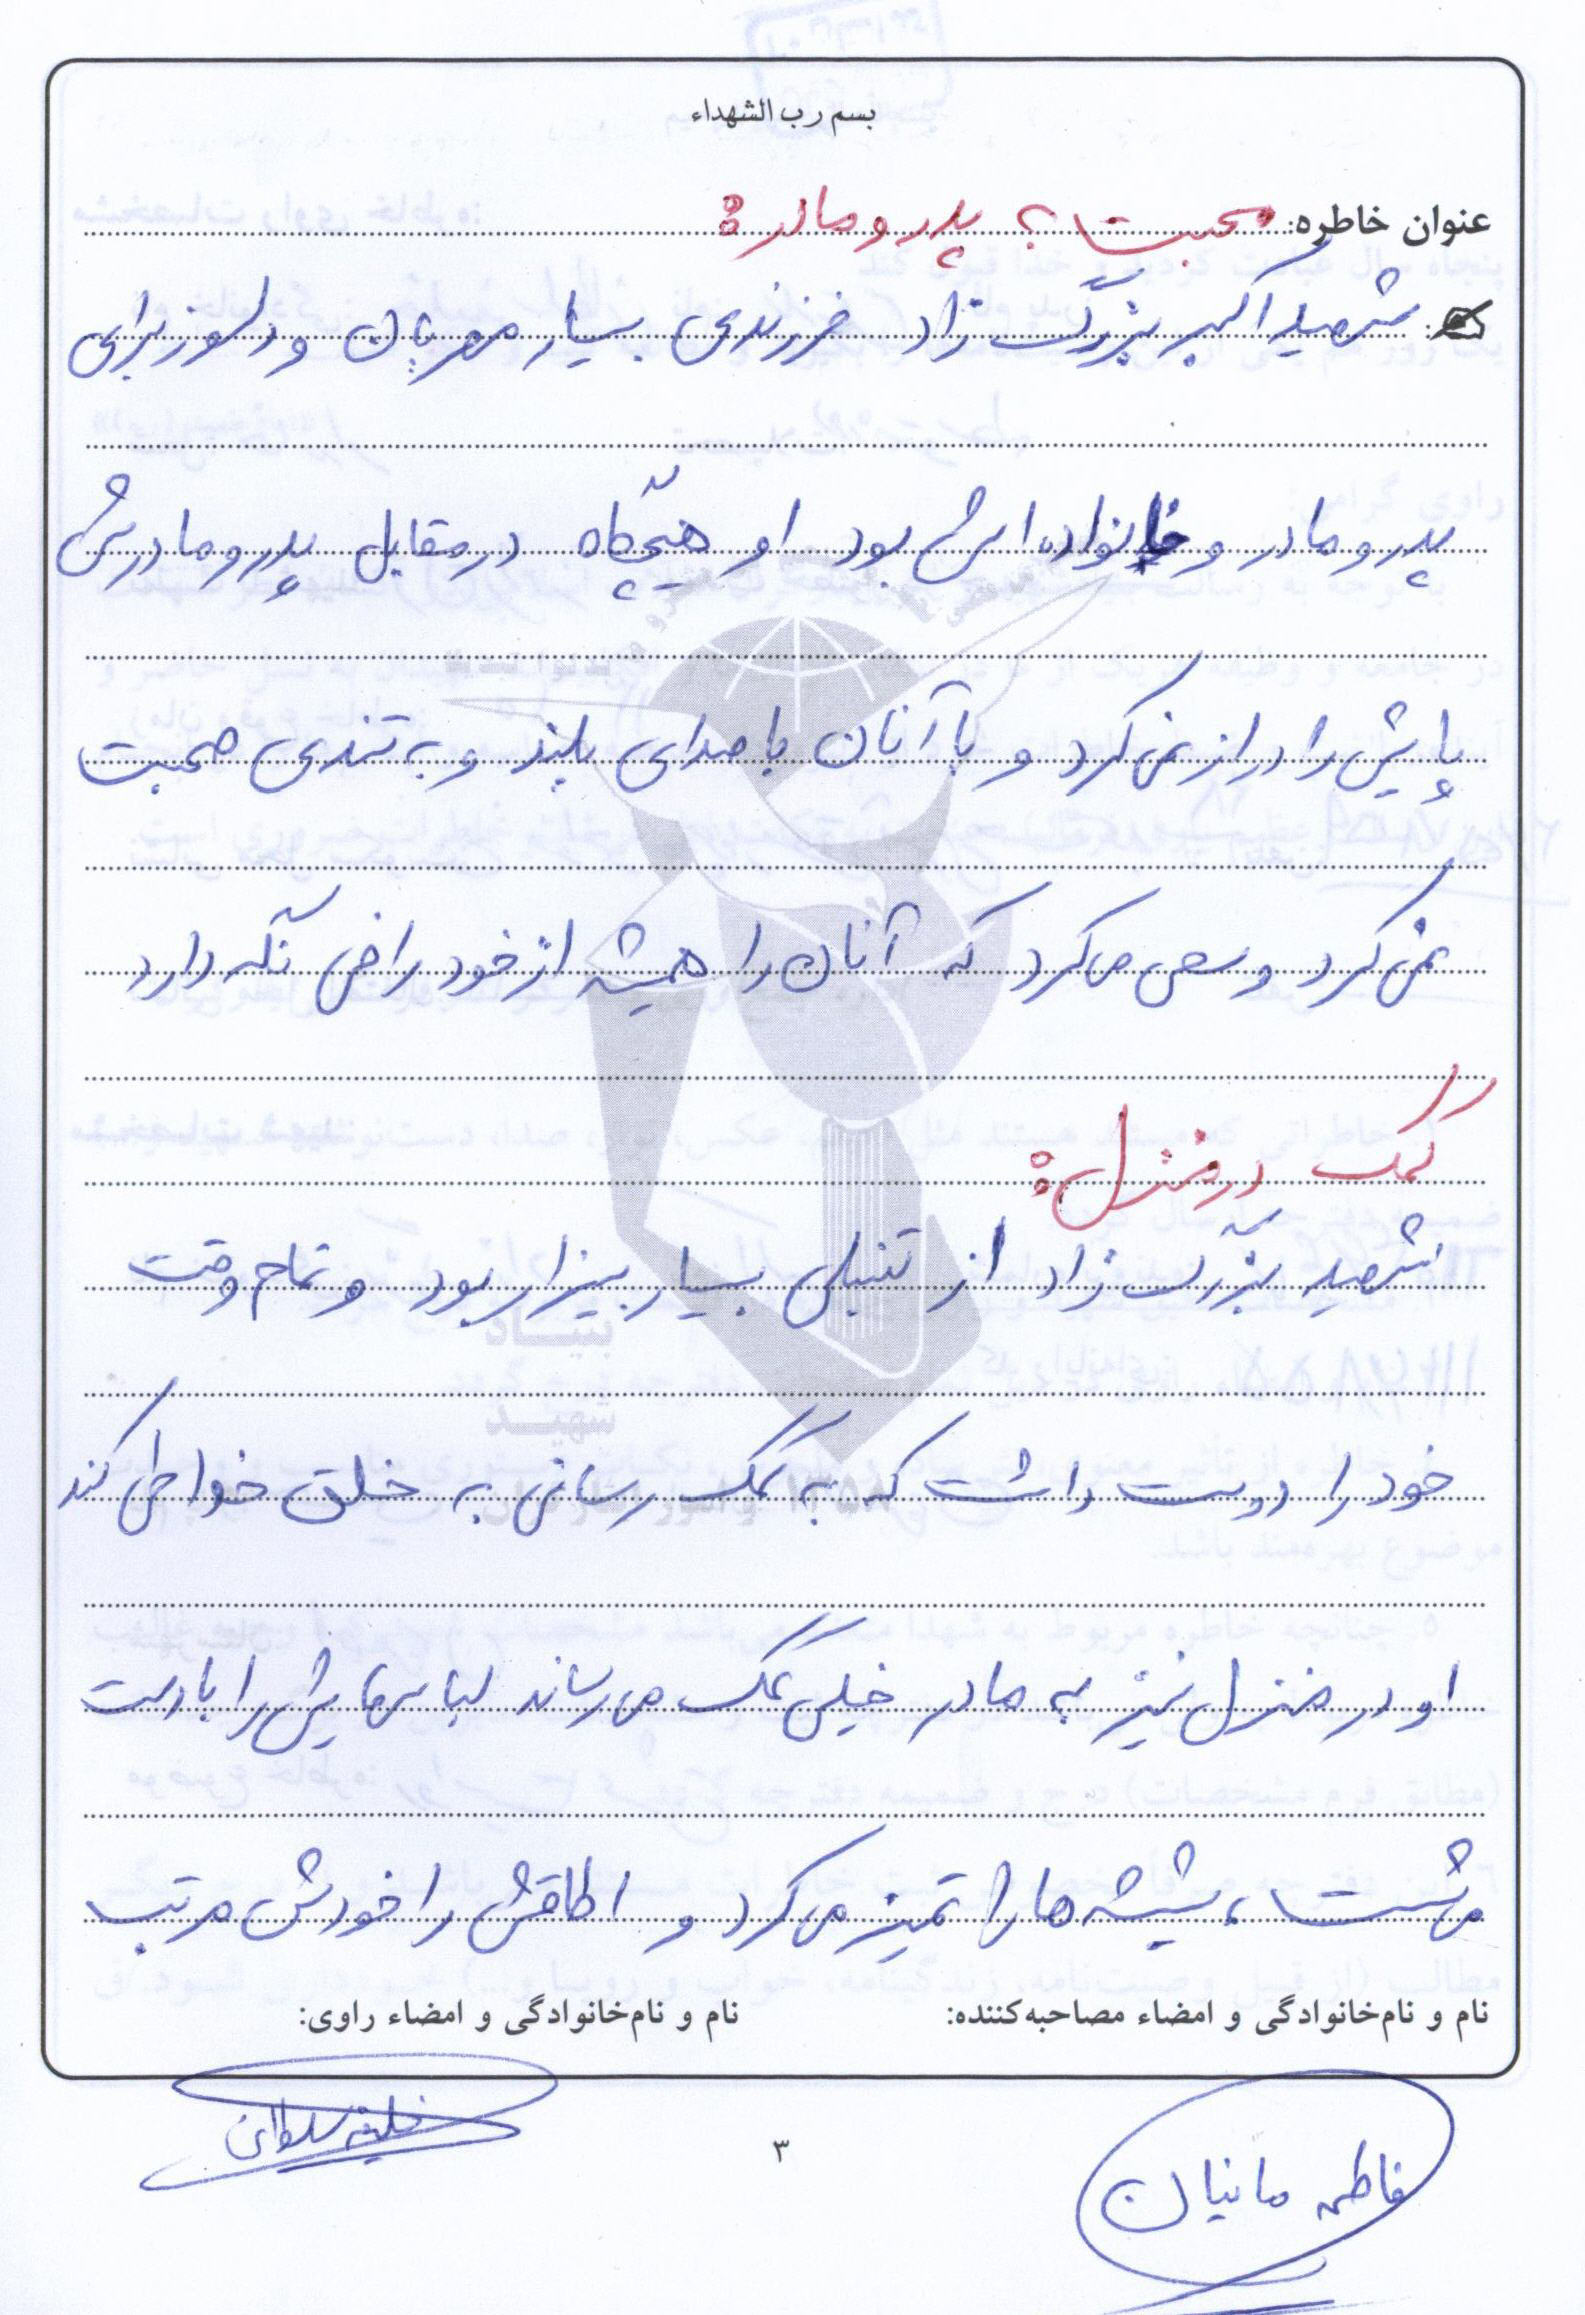 بسم رب الشهداء
عنوان خاطره: محبت به پدر و مادر:
شهید اکبر بزرگ زاد فرزندی بسیار مهربان و دلسوز برای
پدر و مادر و خانواده اش بود او هیچگاه در مقابل پدر و مادرش
پایش را دراز نمی کرد و با آنان با صدای بلند و به تندی صحبت
نمی کرد و سعی می کرد که آنان را همیشه از خود راضی نگه دارد
کمک در منزل:
شهید بزرگ زاد از تنبلی بسیار بیزار بود و تمام وقت
خود را دوست داشت که به کمک رسانی به خلق خدا طی کند
او در منزل نیز به مادر خیلی کمک می رساند لباسهایش را با دست
می شست، شیشه ها را تمیز می کرد و اطاقش را خودش مرتب
نام و نام‌خانوادگی و امضاء مصاحبه‌کننده: نام و نام‌خانوادگی و امضاء راوی:
فاطمه مانیان
۳